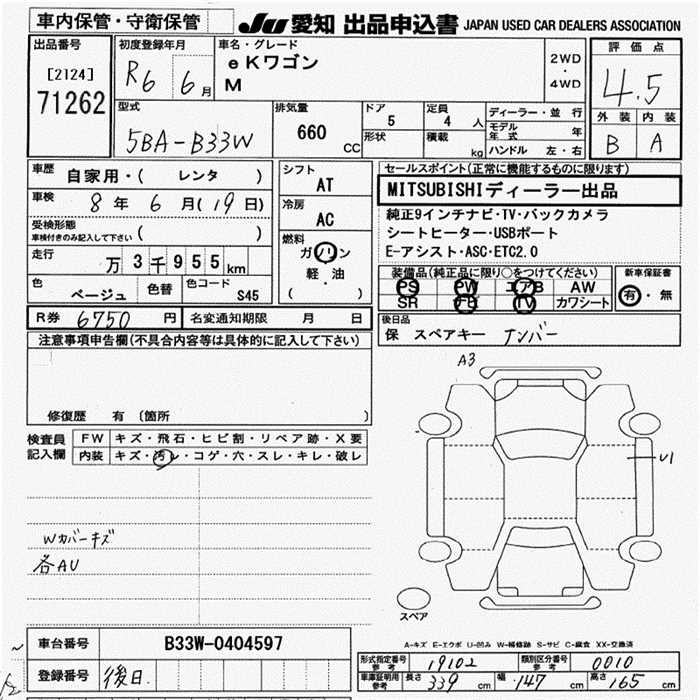 車内保管・守衛保管
JU 愛知 出品申込書 JAPAN USED CAR DEALERS ASSOCIATION
出品番号
[2124]
71262
初度登録年月
R6 6月
車名・グレード
eKワゴン
M
2WD
・
4WD
評価点
4.5
外装 内装
B A
型式
5BA-B33W
排気量
660 CC
ドア
5
形状
定員
4人
積載
kg
ディーラー・並行
モデル年式 年
ハンドル 左・右
車歴 自家用・( レンタ )
車検 8年 6月(19日)
受検形態
車検付きのみ記入して下さい ( )
走行 万3千955km
色 ベージュ 色替 色コード S45
シフト
AT
冷房
AC
燃料
ガソリン
軽・油
( )
セールスポイント(正常に機能するものに限ります)
MITSUBISHIディーラー出品
純正9インチナビ・TV・バックカメラ
シートヒーター・USBポート
E-アシスト・ASC・ETC2.0
装備品(純正品に限り○をつけてください)
PS PW エアB AW
SR TV カワシート
新車保証書
有・無
R券 6750円 名変通知期限 月 日
後日品
保 スペアキー ナンバー
注意事項申告欄(不具合内容等は具体的に記入して下さい)
修復歴 有 〔箇所 〕
検査員記入欄
FW キズ・飛石・ヒビ割・リペア跡・X要
内装 キズ・汚レ・コゲ・穴・スレ・キレ・破レ
Wカバーキズ
各AU
A3
U1
スペア
A-キズ E-エクボ U-凹み W-補修跡 S-サビ C-腐食 XX-交換済
車台番号 B33W-0404597
登録番号 後日.
形式指定番号 参考 19102 類別区分番号 参考 0010
車庫証明用 参考 長さ 339 cm 幅 147 cm 高さ 165 cm